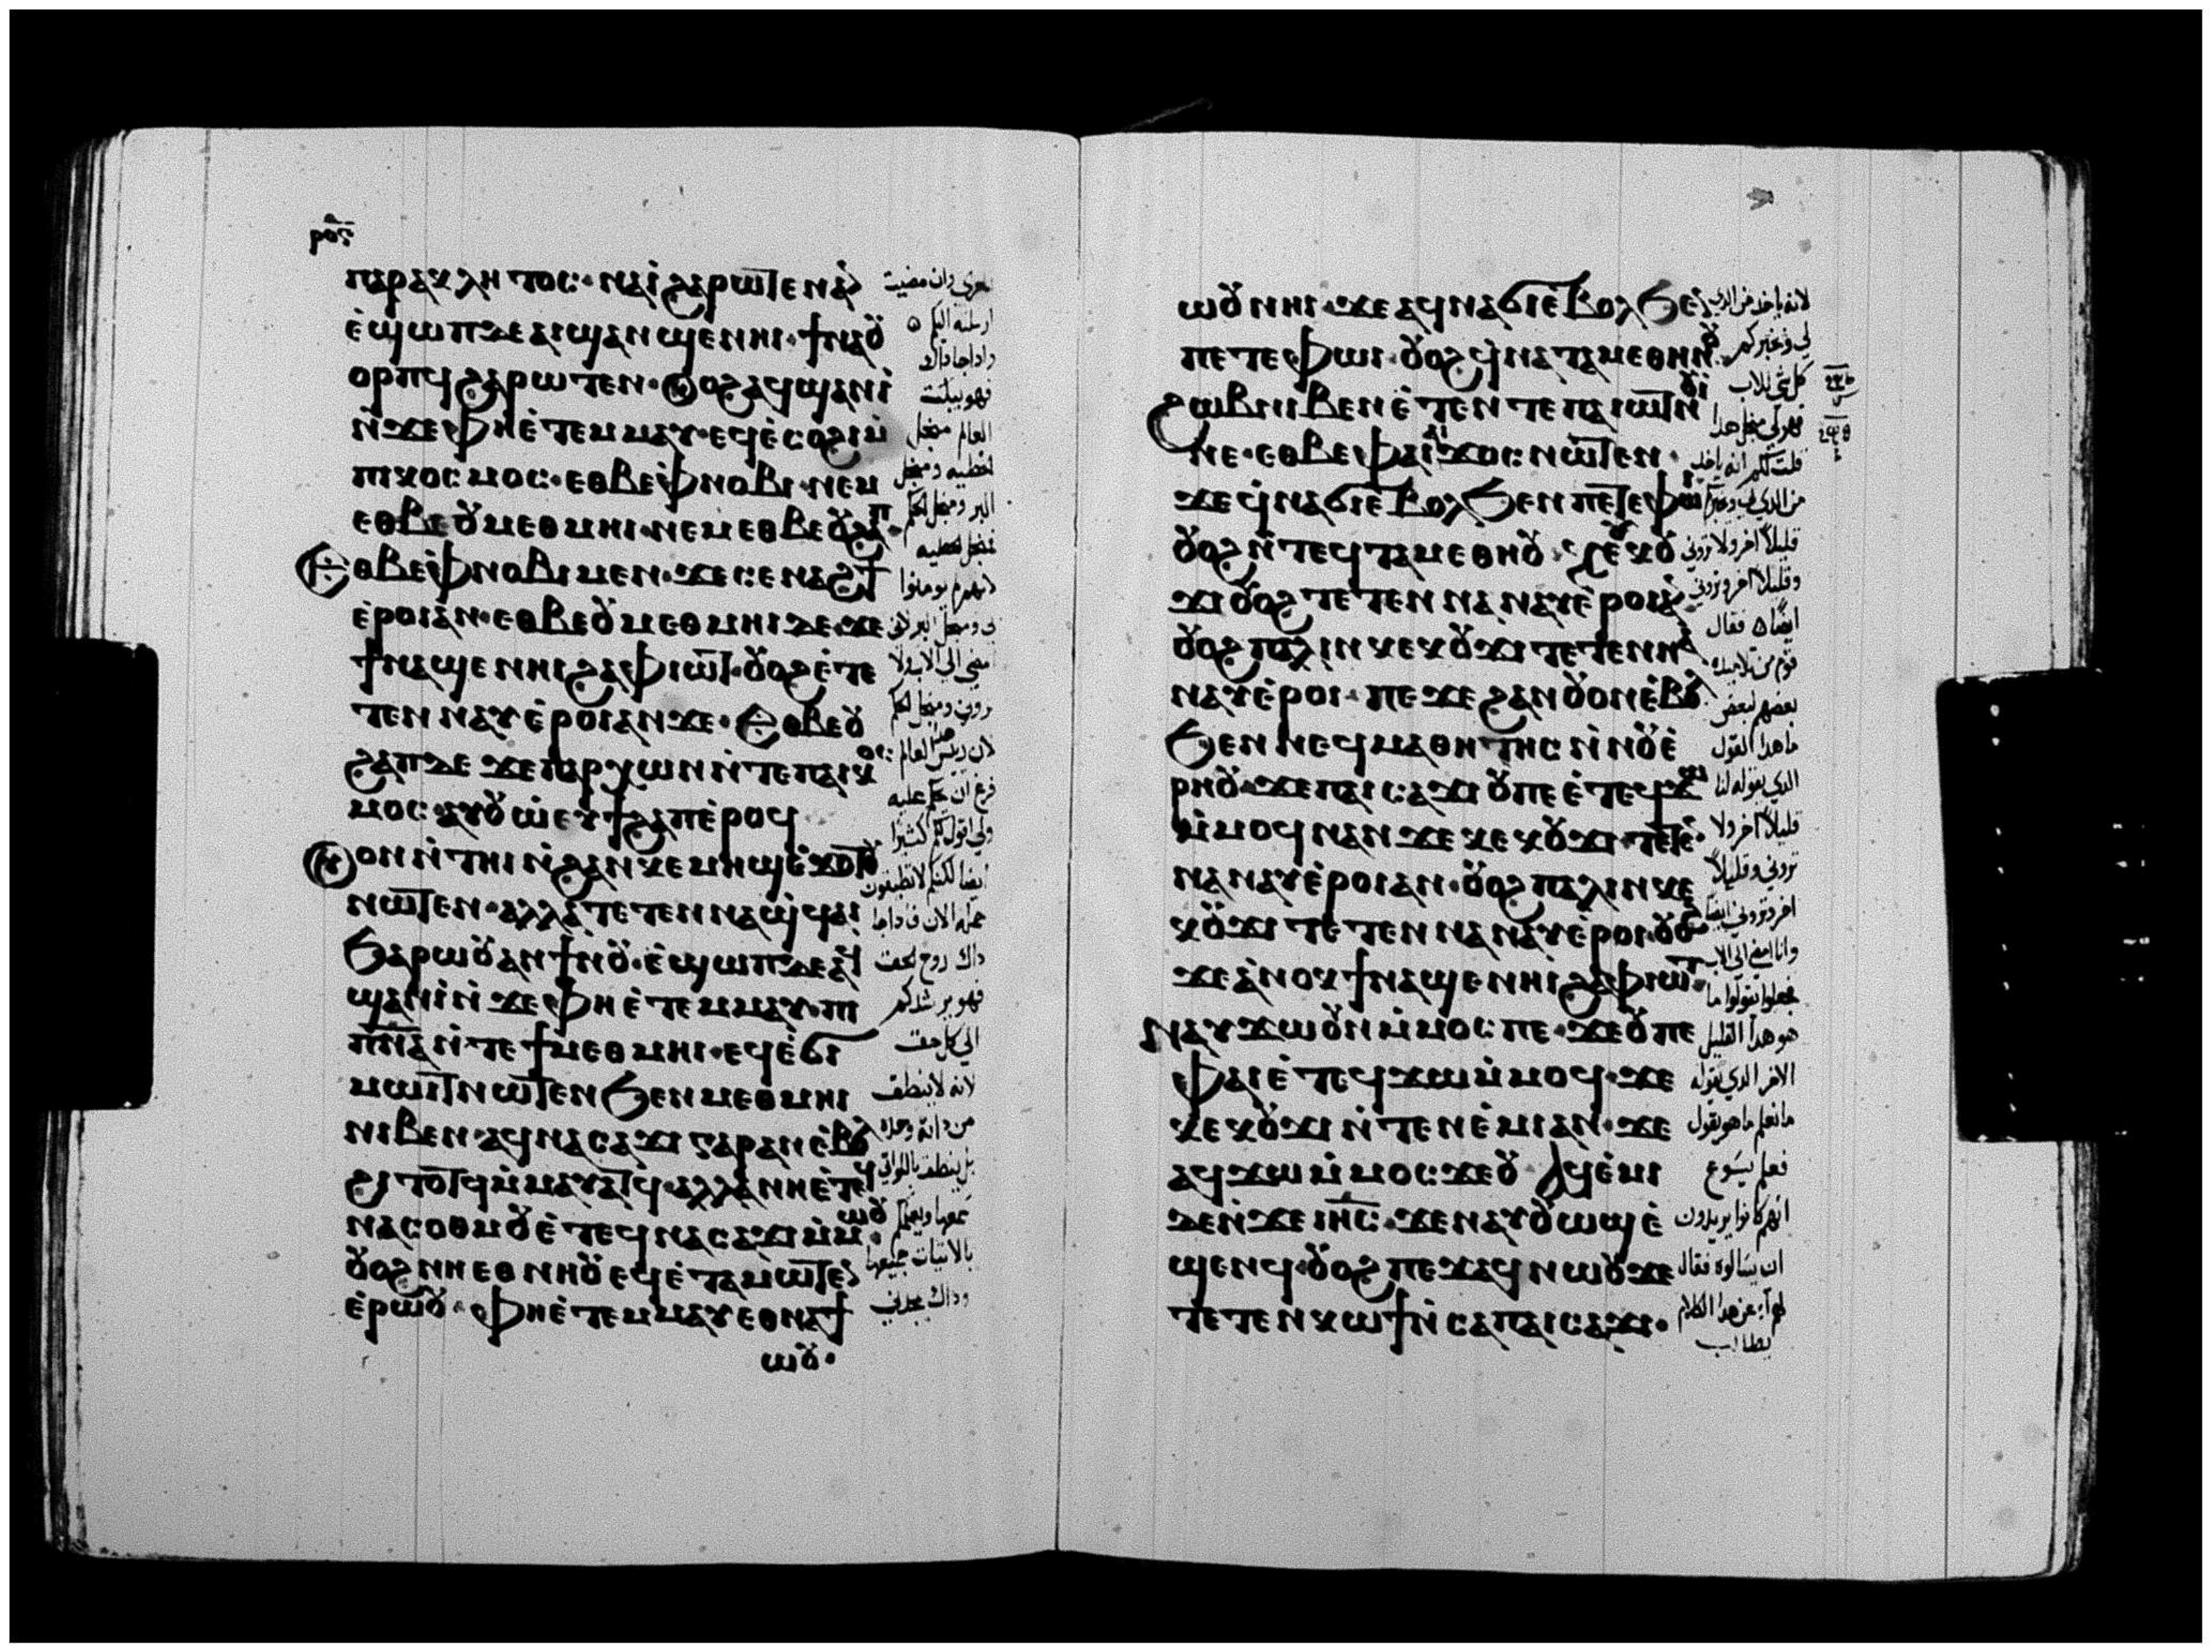 ⲣⲟⲋ
ⲡⲁⲣⲁⲕⲗⲏⲧⲟⲥ· ⲛⲁⲓ̀ ϩⲁⲣⲱⲧⲉⲛ ⲁ̀ⲛ
ⲉ̀ϣⲱⲡ ⲇⲉ ⲁⲓϣⲁⲛϣⲉ ⲛⲏⲓ· ϯⲛⲁⲟⲩ
ⲟⲣⲡϥ ϩⲁⲣⲱⲧⲉⲛ· ⲟⲩⲟϩ ⲁϥϣⲁⲛⲓ̀
ⲛ̀ϫⲉ ⲫⲏ ⲉ̀ⲧⲉⲙⲙⲁⲩ· ⲉϥⲉ̀ⲥⲟϩⲓ ⲙ̀
ⲡⲓⲕⲟⲥⲙⲟⲥ· ⲉⲑⲃⲉ ⲫⲛⲟⲃⲓ· ⲛⲉⲙ
ⲉⲑⲃⲉ ⲟⲩⲙⲉⲑⲙⲏⲓ· ⲛⲉⲙ ⲉⲑⲃⲉ ⲟⲩϩⲁⲡ·
ⲉⲑⲃⲉ ⲫⲛⲟⲃⲓ ⲙⲉⲛ· ϫⲉ ⲥⲉⲛⲁϩϯ
ⲉ̀ⲣⲟⲓ ⲁ̀ⲛ· ⲉⲑⲃⲉ ⲟⲩⲙⲉⲑⲙⲏⲓ ⲇⲉ· ϫⲉ
ϯⲛⲁϣⲉ ⲛⲏⲓ ϩⲁ ⲫⲓⲱⲧ· ⲟⲩⲟϩ ⲉ̀ⲧⲉ
ⲧⲉⲛⲛⲁⲩ ⲉ̀ⲣⲟⲓ ⲁⲛ ϫⲉ· ⲉⲑⲃⲉ ⲟⲩ
ϩⲁⲡ ⲇⲉ ϫⲉ ⲡⲁⲣⲭⲱⲛ ⲛ̀ⲧⲉ ⲡⲁⲓⲕⲟⲥ
ⲙⲟⲥ· ⲁⲩⲟⲩⲱ ⲉⲩϯϩⲁⲡ ⲉ̀ⲣⲟϥ
ⲟⲩⲟⲛ ⲛ̀ⲧⲏⲓ ⲛ̀ϩⲁⲛⲕⲉⲙⲏϣ ⲉ̀ϫⲟⲧⲟⲩ
ⲛⲱⲧⲉⲛ· ⲁⲗⲗⲁ ⲧⲉⲧⲉⲛⲛⲁϣϥⲁⲓ
ϧⲁⲣⲱⲟⲩ ⲁⲛ ϯⲛⲟⲩ· ⲉ̀ϣⲱⲡ ⲇⲉ ⲁϥ
ϣⲁⲛⲓ̀ ⲛ̀ϫⲉ ⲫⲏ ⲉ̀ⲧⲉⲙⲙⲁⲩ· ⲡⲓ
ⲡⲛⲁ ⲛ̀ⲧⲉ ϯⲙⲉⲑⲙⲏⲓ· ⲉϥⲉ̀ϭⲓ
ⲙⲱⲓⲧ ⲛⲱⲧⲉⲛ ϧⲉⲛ ⲙⲉⲑⲙⲏⲓ
ⲛⲓⲃⲉⲛ· ⲁϥⲛⲁⲥⲁϫⲓ ⲅⲁⲣ ⲁⲛ ⲉ̀ⲃⲟⲗ
ϩⲓⲧⲟⲧϥ ⲙ̀ⲙⲁⲩⲁⲧϥ· ⲁⲗⲗⲁ ⲛⲏ ⲉ̀ⲧⲉϥ
ⲛⲁⲥⲟⲑⲙⲟⲩ ⲉ̀ⲧⲉϥⲛⲁⲥⲁϫⲓ ⲙ̀ⲙⲱⲟⲩ·
ⲟⲩⲟϩ ⲛⲏ ⲉⲑⲛⲏⲟⲩ ⲉϥⲉ̀ⲧⲁⲙⲱⲧⲉⲛ
ⲉ̀ⲣⲱⲟⲩ· ⲫⲏ ⲉ̀ⲧⲉⲙⲙⲁⲩ ⲉⲑⲛⲁϯ
ⲱⲟⲩ·
معزي وان مضيت
ارسلته اليكم
واذا جا داك
فهو يبكت
العالم منجل
الخطيه ومنجل
البر ومنجل الحكم
لانهم لم يومنوا
بي ومنجل البر لاني
امضي الي الاب ولا
تروني ومنجل الحكم
لان رييس العالم
ولي اقول لكم كثيرًا
ايضا لكنكم لا تطيقون
حمله الان فاذا جا
داك روح الحق
فهو يرشدكم
الي كل حق
لانه لا ينطق
من ذاته وحده
وداك يمجدني
ⲱⲟⲩ ⲛⲏⲓ· ϫⲉ ⲁϥⲛⲁϭⲓ ⲉ̀ⲃⲟⲗ ϧⲉⲛ
ⲡⲉⲧⲉ ⲫⲱⲓ· ⲟⲩⲟϩ ϥ̀ⲛⲁⲧⲁⲙⲉ ⲑⲏⲛⲟⲩ·
ϩⲱⲃ ⲛⲓⲃⲉⲛ ⲉ̀ⲧⲉⲛⲧⲉ ⲡⲁⲓⲱⲧ ⲛⲟⲩⲓ
ⲛⲉ· ⲉⲑⲃⲉ ⲫⲁⲓ ⲁⲓϫⲟⲥ ⲛⲱⲧⲉⲛ·
ϫⲉ ϥ̀ⲛⲁϭⲓ ⲉ̀ⲃⲟⲗ ϧⲉⲛ ⲡⲉⲧⲉ ⲫⲱⲓ
ⲟⲩⲟϩ ⲛ̀ⲧⲉϥⲧⲁⲙⲉ ⲑⲏⲛⲟⲩ· ⲕⲉⲕⲟⲩ
ϫⲓ ⲟⲩⲟϩ ⲧⲉⲧⲉⲛⲛⲁⲛⲁⲩ ⲉ̀ⲣⲟⲓ ⲁⲛ
ⲟⲩⲟϩ ⲡⲁⲗⲓⲛ ⲕⲉⲕⲟⲩϫⲓ ⲧⲉⲧⲉⲛⲛⲁ
ⲛⲁⲩ ⲉ̀ⲣⲟⲓ· ⲡⲉϫⲉ ϩⲁⲛⲟⲩⲟⲛ ⲉ̀ⲃⲟⲗ
ϧⲉⲛ ⲛⲉϥⲙⲁⲑⲏⲧⲏⲥ ⲛ̀ⲛⲟⲩⲉ̀
ⲣⲏⲟⲩ· ϫⲉ ⲡⲁⲓⲥⲁϫⲓ ⲟⲩ ⲡⲉ ⲉ̀ⲧⲉϥϫⲱ
ⲙ̀ⲙⲟϥ ⲛⲁⲛ ϫⲉ ⲕⲉⲕⲟⲩϫⲓ· ⲧⲉⲧⲉⲛ
ⲛⲁⲛⲁⲩ ⲉ̀ⲣⲟⲓ ⲁⲛ· ⲟⲩⲟϩ ⲡⲁⲗⲓⲛ ⲕⲉ
ⲕⲟⲩϫⲓ ⲧⲉⲧⲉⲛⲛⲁⲛⲁⲩ ⲉ̀ⲣⲟⲓ· ⲟⲩⲟϩ
ϫⲉ ⲁ̀ⲛⲟⲕ ϯⲛⲁϣⲉ ⲛⲏⲓ ϩⲁ ⲫⲓⲱⲧ·
ⲛⲁⲩϫⲱ ⲟⲩⲛ ⲙ̀ⲙⲟⲥ ⲡⲉ· ϫⲉ ⲟⲩ ⲡⲉ
ⲫⲁⲓ ⲉ̀ⲧⲉϥϫⲱ ⲙ̀ⲙⲟϥ· ϫⲉ
ⲕⲉⲕⲟⲩϫⲓ ⲛ̀ⲧⲉⲛⲉ̀ⲙⲓ ⲁⲛ· ϫⲉ
ⲁϥϫⲱ ⲙ̀ⲙⲟⲥ ϫⲉ ⲟⲩ ⲁϥⲉ̀ⲙⲓ
ⲇⲉ ⲛ̀ϫⲉ ⲓⲏⲥ· ϫⲉ ⲛⲁⲩⲟⲩⲱϣ ⲉ̀
ϣⲉⲛϥ· ⲟⲩⲟϩ ⲡⲉϫⲁϥ ⲛⲱⲟⲩ ϫⲉ
ⲧⲉⲧⲉⲛⲕⲱϯ ⲛ̀ⲥⲁ ⲡⲁⲓⲥⲁϫⲓ·
لانه ياخد من الدي
لي ويخبركم
كل شي للاب
فهو لي منجل هدا
قلت لكم انه ياخد
من الدي لي ويخبركم
قليلاً اخر ولا تروني
وقليلاً اخر وتروني
ايضًا فقال
قوم من تلاميده
بعضهم لبعض
ما هدا القول
الدي يقوله لنا
قليلاً اخر ولا
تروني وقليلاً
اخر وتروني ايضا
وانا امضي الي الاب
فجعلوا يقولوا ما
هو هدا القليل
الاخر الدي يقوله
ما نعلم ما هو يقول
فعلم يسوع
انهم كانوا يريدون
ان يسالوه فقال